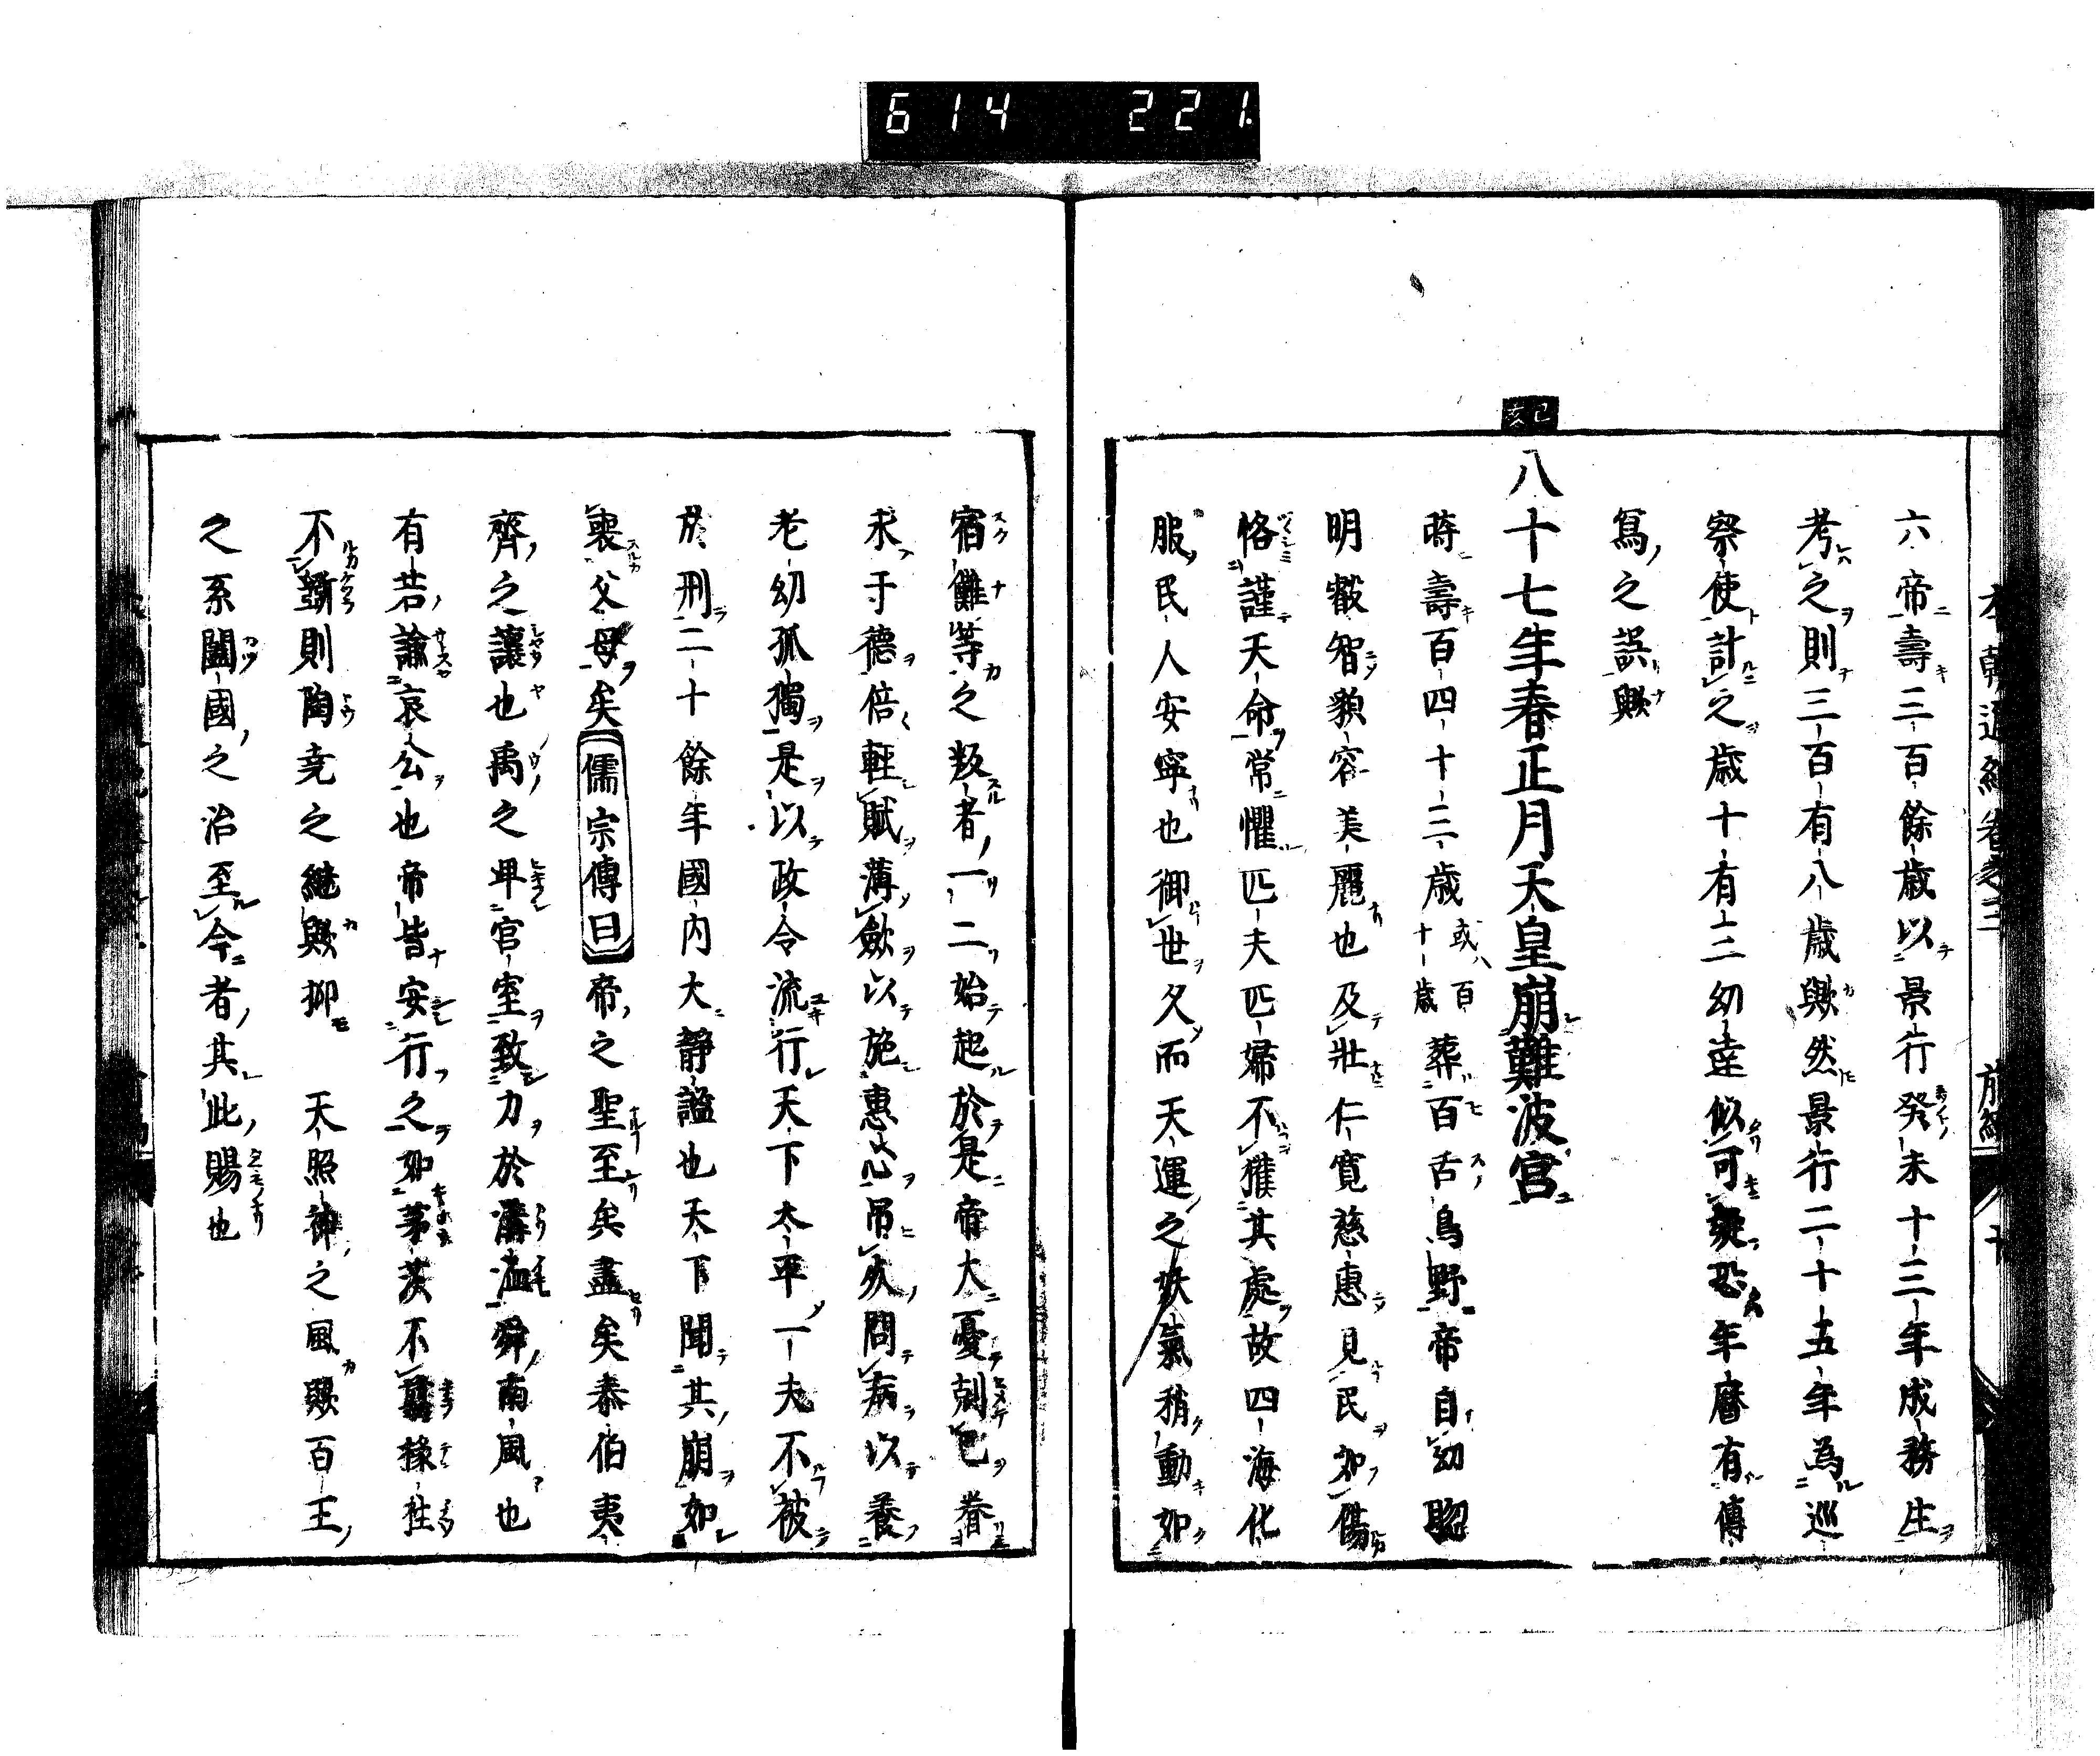 614 221.
六帝壽三百餘歲以景行癸未十三年成務生
考之則三百有八歲歟然景行二十五年為巡
察使計之歲十有二三幼逹似可疑恐年曆有傳
寫之誤歟
己亥
八十七年春正月天皇崩難波宮
時壽百四十三歲或百十歲葬百舌鳥野帝自幼聰
明叡智貌容美麗也及壯仁寬慈惠見民如傷
恪謹天命常懼匹夫匹婦不獲其處故四海化
服民人安寧也御世久而天運之妖氣稍動如
宿儺等之叛者一二始起於是帝大憂剋己眷
求于德倍輕賦薄歛以施惠心吊死問病以養
老幼孤獨是以政令流行天下太平一夫不被
於刑二十餘年國內大靜謐也天下聞其崩如
喪父母矣儒宗傳曰帝之聖至矣盡矣泰伯夷
齊之讓也禹之卑宮室致力於溝洫舜南風也
有若諭哀公也帝皆安行之如茅茨不翦椽柱
不斲則陶堯之継歟抑 天照神之風歟百王
之系闔國之治至今者其此賜也